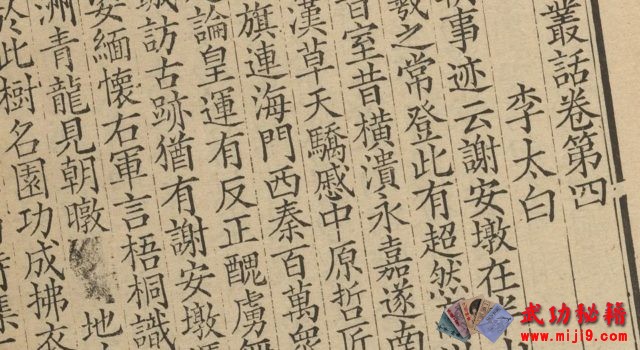 叢話卷第四
李太白
事迹云謝安墩在
羲之常登此有超然
晉室昔橫潰永嘉遂南
漢草天驕慼中原哲匠
旗連海門西秦百萬衆
論皇運有反正醜虜無
訪古跡猶有謝安墩
安緬懷右軍言梧桐識
洲青龍見朝暾 地
於此樹名園功成拂衣
詩集
武功秘籍
www.miji9.com